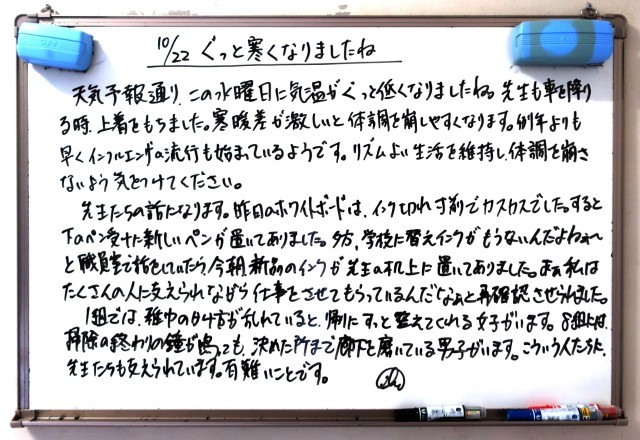 10/22 ぐっと寒くなりましたね
天気予報通り、この水曜日に気温がぐっと低くなりましたね。先生も車を降り
る時、上着をもちました。寒暖差が激しいと体調を崩しやすくなります。例年よりも
早くインフルエンザの流行も始まっているようです。リズムよい生活を維持し、体調を崩さ
ないよう気をつけてください。
先生たちの話になります。昨日のホワイトボードは、インク切れ寸前でカスカスでした。すると
下のペン受けに新しいペンが置いてありました。夕方、学校に替えインクがもうないんだよねぇ〜
と職員室で話をしていたら、今朝、新品のインクが先生の机上に置いてありました。あぁ私は
たくさんの人に支えられながら仕事をさせてもらっているんだなぁと再確認させられました。
1組では、雑巾のかけ方が乱れていると、帰りにずっと整えてくれる女子がいます。8組では、
掃除の終わりの鐘が鳴っても、決めた所まで廊下を磨いている男子がいます。こういう人たちに、
先生たちも支えられています。有難いことです。